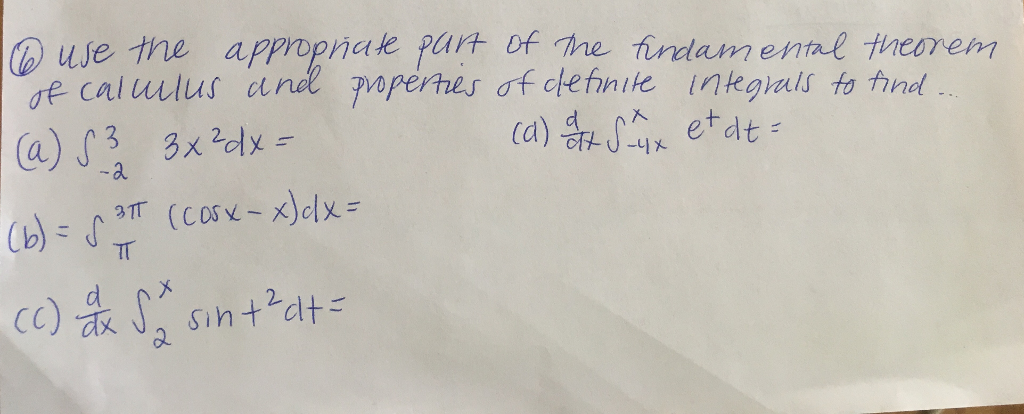 ⑥ use the appropriate part of the fundamental theorem
of calculus and properties of definite integrals to find ...
(a) ∫₋₂³ 3x²dx =
(d) d/dx ∫₋₄ₓˣ eᵗ dt =
(b) = ∫π³π (cosx - x)dx =
(c) d/dx ∫₂ˣ sint²dt =